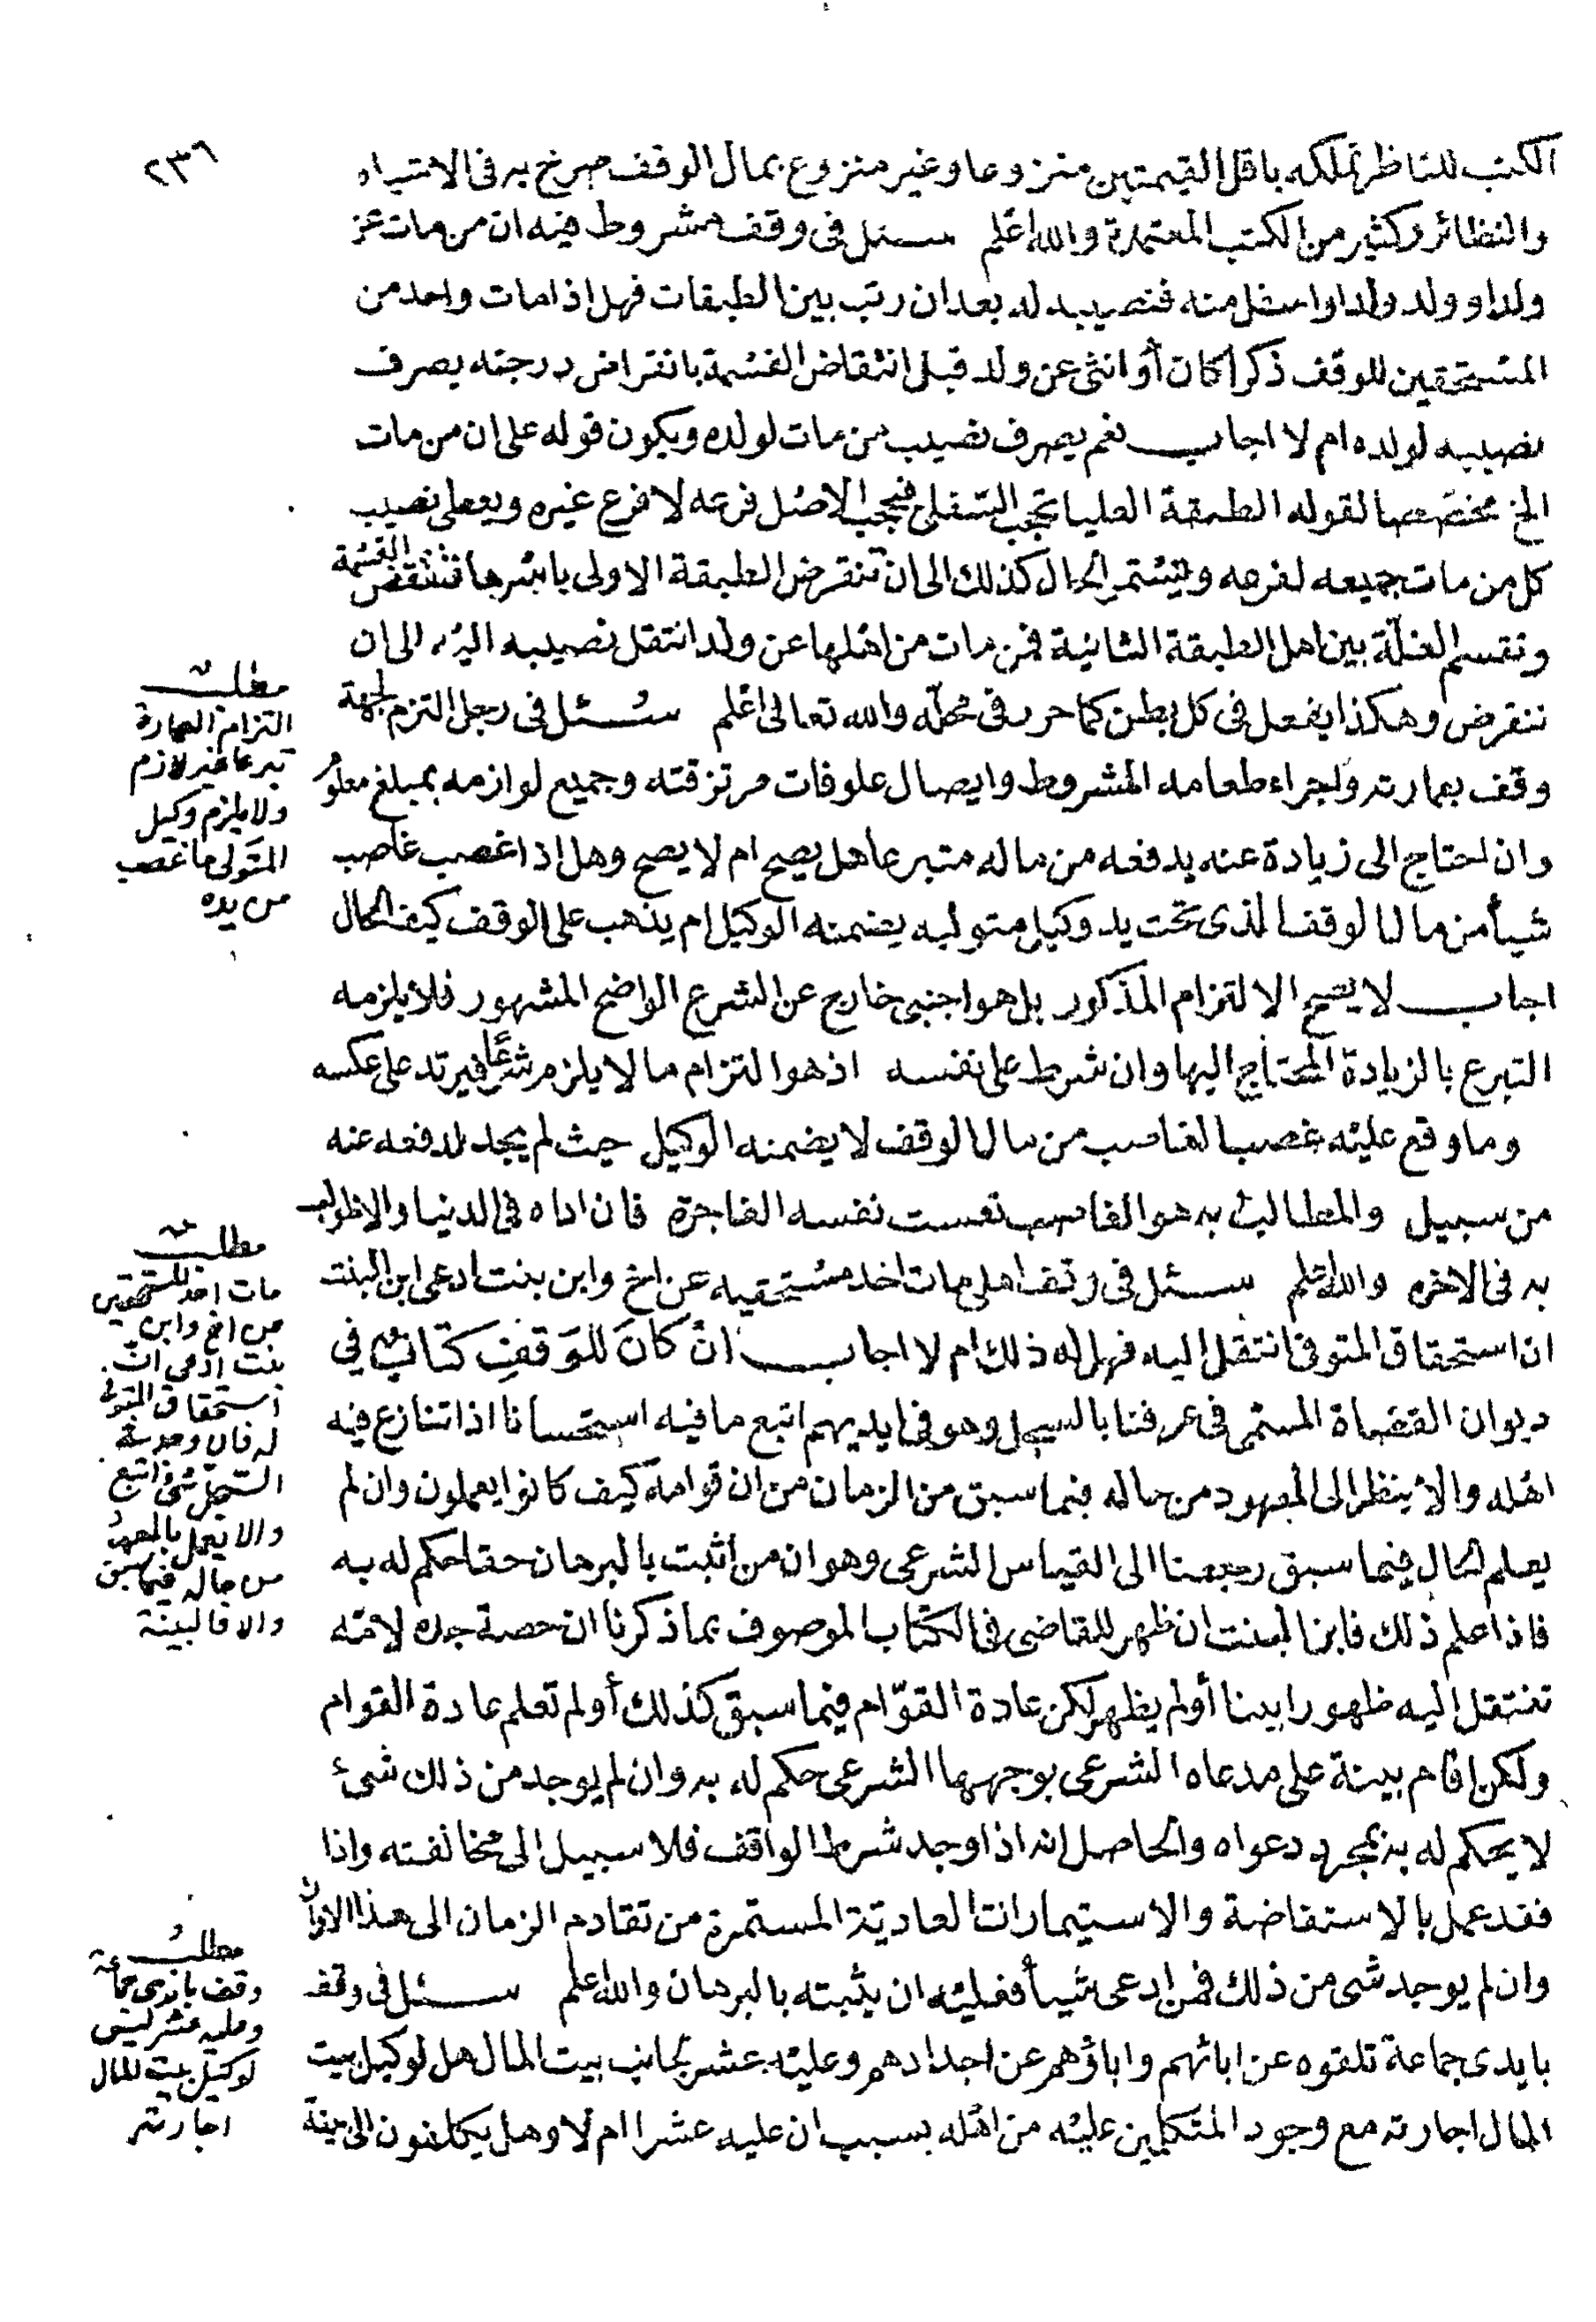 ٢٣٦
الكتب للناظر تملكه باقل القيمتين منزوعا وغير منزوع بمال الوقف صرح به فى الاشباه
والنظائر وكثير من الكتب المعتمدة والله اعلم سئل فى وقف مشروط فيه ان من مات عن
ولد او ولد ولد او اسفل منه فنصيبه له بعد ان رتب بين الطبقات فهل اذا مات واحد من
المستحقين للوقف ذكرا كان أو انثى عن ولد قبل انتقاض القسمة بانقراض درجته يصرف
نصيبه لولده ام لا اجاب نعم يصرف نصيب من مات لولده ويكون قوله على ان من مات
الخ مخصصا لقوله الطبقة العليا تحجب السفلى فيحجب الاصل فرعه لا فرع غيره ويعطى نصيب
كل من مات جميعه لفرعه ويستمر الحال كذلك الى ان تنقرض الطبقة الاولى باسرها فتنتقض القسمة
وتقسم الغلة بين اهل الطبقة الثانية فمن مات من اهلها عن ولد انتقل نصيبه اليه الى ان
تنقرض وهكذا يفعل فى كل بطن كما حرر فى محله والله تعالى اعلم سئل فى رجل التزم لجهة
وقف بعمارته واجراء طعامه المشروط وايصال علوفات مرتزقته وجميع لوازمه بمبلغ معلوم
وان احتاج الى زيادة عنه يدفعه من ماله متبرعا هل يصح ام لا يصح وهل اذا غصب غاصب
شيأ من مال الوقف الذى تحت يد وكيل متوليه يضمنه الوكيل ام يذهب على الوقف كيف الحال
اجاب لا يصح الالتزام المذكور بل هو اجنبى خارج عن الشرع الواضح المشهور فلا يلزمه
التبرع بالزيادة المحتاج اليها وان شرط على نفسه اذ هو التزام ما لا يلزم شرعا فيرتد على عكسه
وما وقع عليه غصب الغاصب من مال الوقف لا يضمنه الوكيل حيث لم يجد لدفعه عنه
من سبيل والمطالب به هو الغاصب تعست نفسه الفاجرة فان اداه فى الدنيا والا طولب
به فى الاخرة والله اعلم سئل فى وقف اهلى مات احد مستحقيه عن اخ وابن بنت ادعى ابن البنت
ان استحقاق المتوفى انتقل اليه فهل له ذلك ام لا اجاب ان كان للوقف كتاب فى
ديوان القضاة المسمى فى عرفنا بالسجل وهو فى ايديهم اتبع ما فيه استحسانا اذا تنازع فيه
اهله والا ينظر الى المعهود من حاله فيما سبق من الزمان من ان قوامه كيف كانوا يعملون وان لم
يعلم الحال فيما سبق رجعنا الى القياس الشرعى وهو ان من اثبت بالبرهان حقا حكم له به
فاذا علم ذلك فابن البنت ان ظهر للقاضى فى الكتاب الموصوف بما ذكرنا ان حصة جده لامه
تنتقل اليه ظهورا بينا أو لم يظهر لكن عادة القوّام فيما سبق كذلك أو لم تعلم عادة القوام
ولكن اقام بينة على مدعاه الشرعى بوجهها الشرعى حكم له به وان لم يوجد من ذلك شئ
لا يحكم له به بمجرد دعواه والحاصل انه اذا وجد شرط الواقف فلا سبيل الى مخالفته واذا
فقد عمل بالاستفاضة والاستيمارات العادية المستمرة من تقادم الزمان الى هذا الاوان
وان لم يوجد شى من ذلك فمن ادعى شيأ فعليه ان يثبته بالبرهان والله اعلم سئل فى وقف
بايدى جماعة تلقوه عن ابائهم واباؤهم عن اجدادهم وعليه عشر لجانب بيت المال هل لوكيل بيت
المال اجارته مع وجود المتكلمين عليه من اهله بسبب ان عليه عشرا ام لا وهل يكلفون الى بينة
مطلب
التزام العمارة
تبرعا غير لازم
ولا يلزم وكيل
المتولى ما غصب
من يده
مطلب
مات احد المستحقين
عن اخ وابن
بنت ادعى ان
استحقاق المتوفى
له فان وجد فى
السجل شئ اتبع
والا يعمل بالمعهود
من حاله فيما سبق
والا فالبينة
مطلب
وقف بايدى جماعة
وعليه عشر ليس
لوكيل بيت المال
اجارته